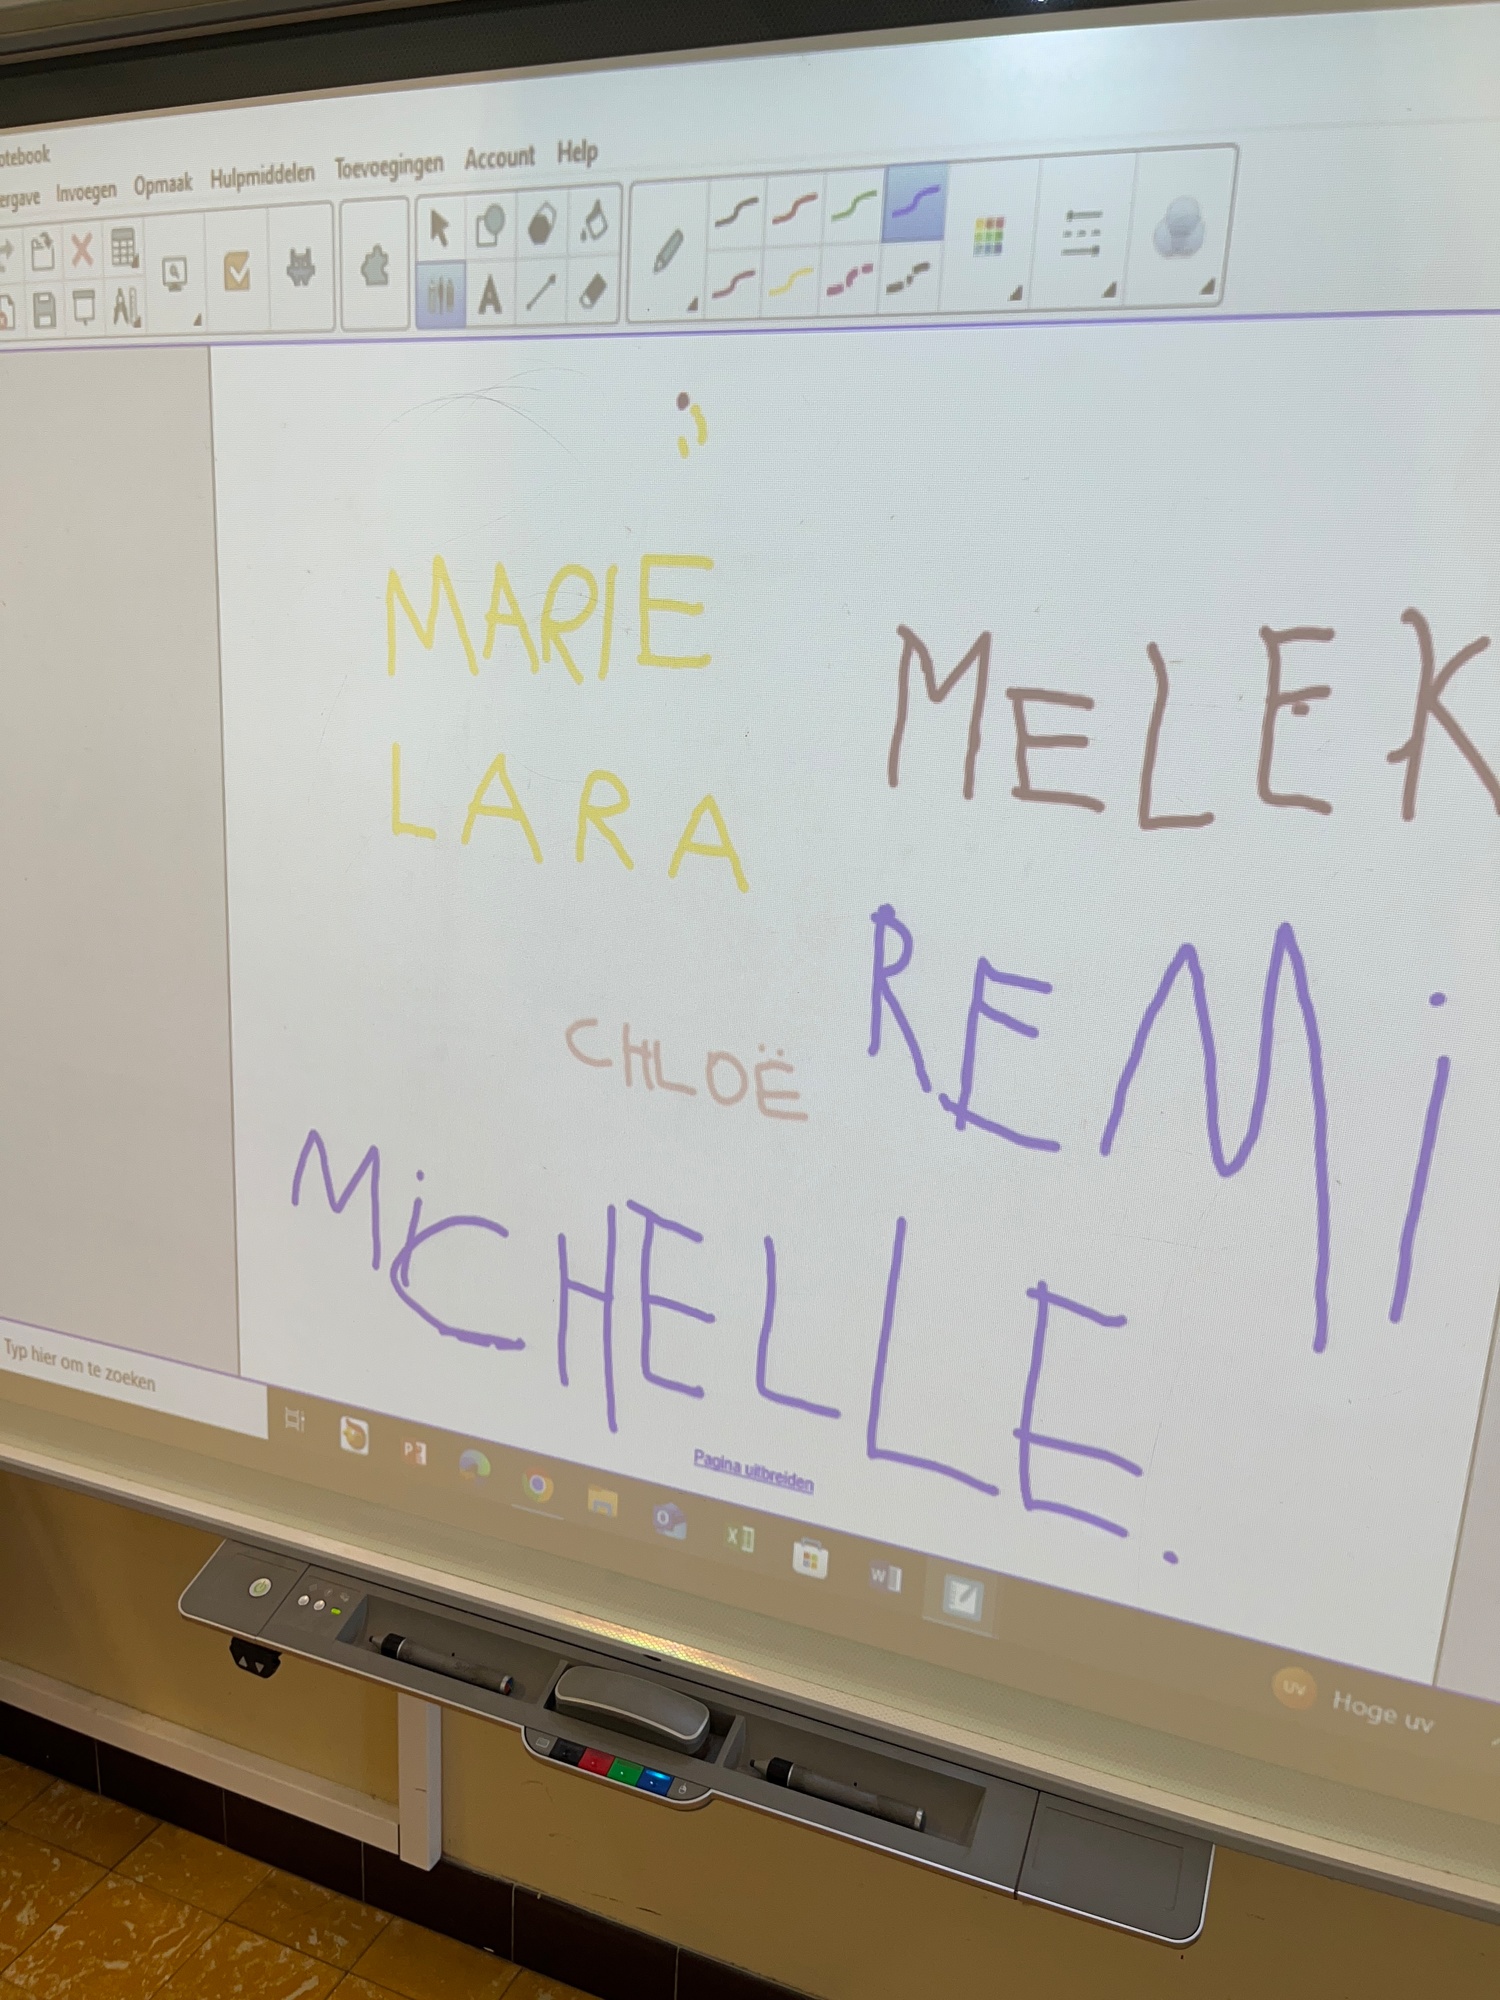 otebook
ergave Invoegen Opmaak Hulpmiddelen Toevoegingen Account Help
MARIE
MELEK
LARA
REMi
CHLOË
MiCHELLE.
Pagina uitbreiden
Typ hier om te zoeken
Hoge uv